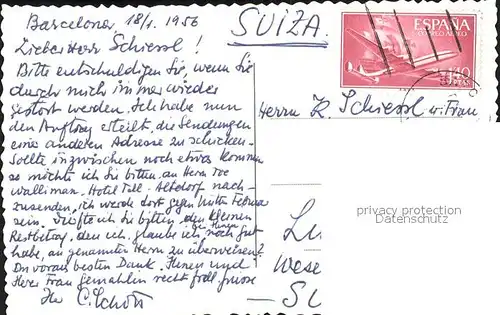 Barcelona 18/1. 1956
Lieber Herr Schiessl!
Bitte entschuldigen Sie, wenn Sie
durch mich immer wieder
gestört werden. Ich habe nun
den Auftrag erteilt, die Sendungen
eine anderen Adresse zu schicken.
Sollte inzwischen noch etwas kommen
so möchte ich Sie bitten, an Herrn
Wallimann, Hotel Tell - Altdorf nach-
zusenden, ich werde dort gegen Mitte Februar
sein. Dürfte ich Sie bitten, den kleinen
Restbetrag, den ich, glaube ich, bei Ihnen noch gut
habe, an genannten Herrn zu überweisen?
Im voraus besten Dank. Ihnen und
Ihrer Frau Gemahlin recht frdl. Grüsse
Ihr C. Schott
SUIZA.
ESPAÑA
CORREO AEREO
1'40
PTAS
Herrn K. Schiessl u. Frau
privacy protection
Datenschutz
Lu
Wese
- SU